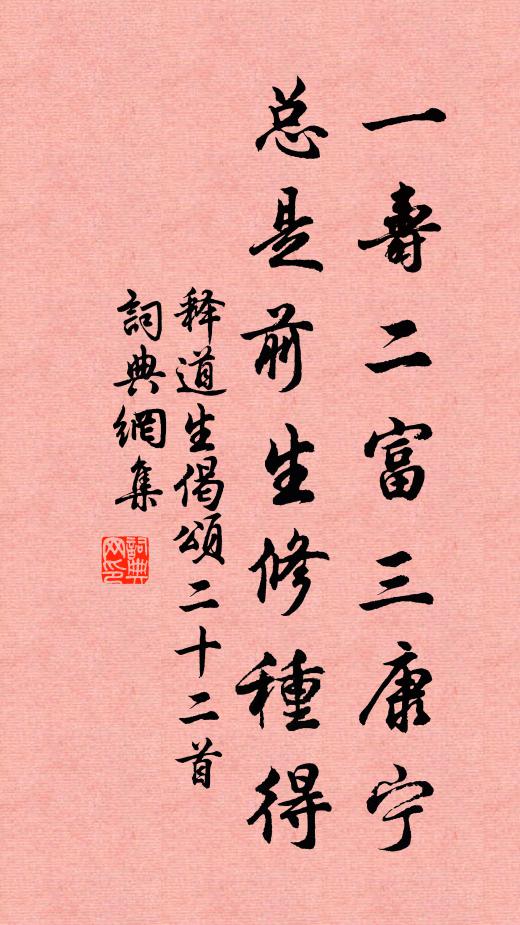 一壽二富三康宁
总是前生修種得
释道生偈頌二十二首
詞典網集
詞典网印